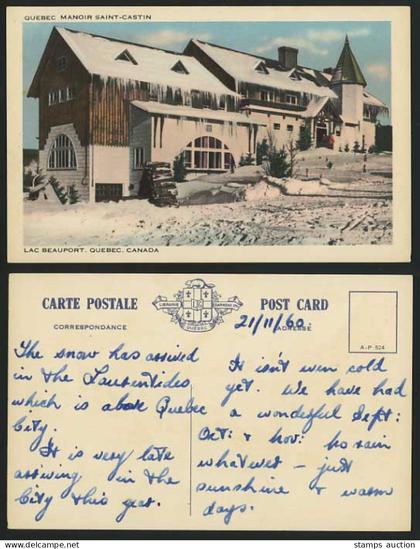 QUEBEC MANOIR SAINT-CASTIN
LAC BEAUPORT. QUEBEC. CANADA
CARTE POSTALE
POST CARD
CORRESPONDANCE
ADRESSE
QUEBEC
21/11/60
A-P 524
The snow has arrived
in the Laurentides
which is above Quebec
City.
It is very late
arriving in the
City this year.
It isn't even cold
yet. We have had
a wonderful Sept:
Oct: & Nov: no rain
what ever - just
sunshine & warm
days.
delcampe.net